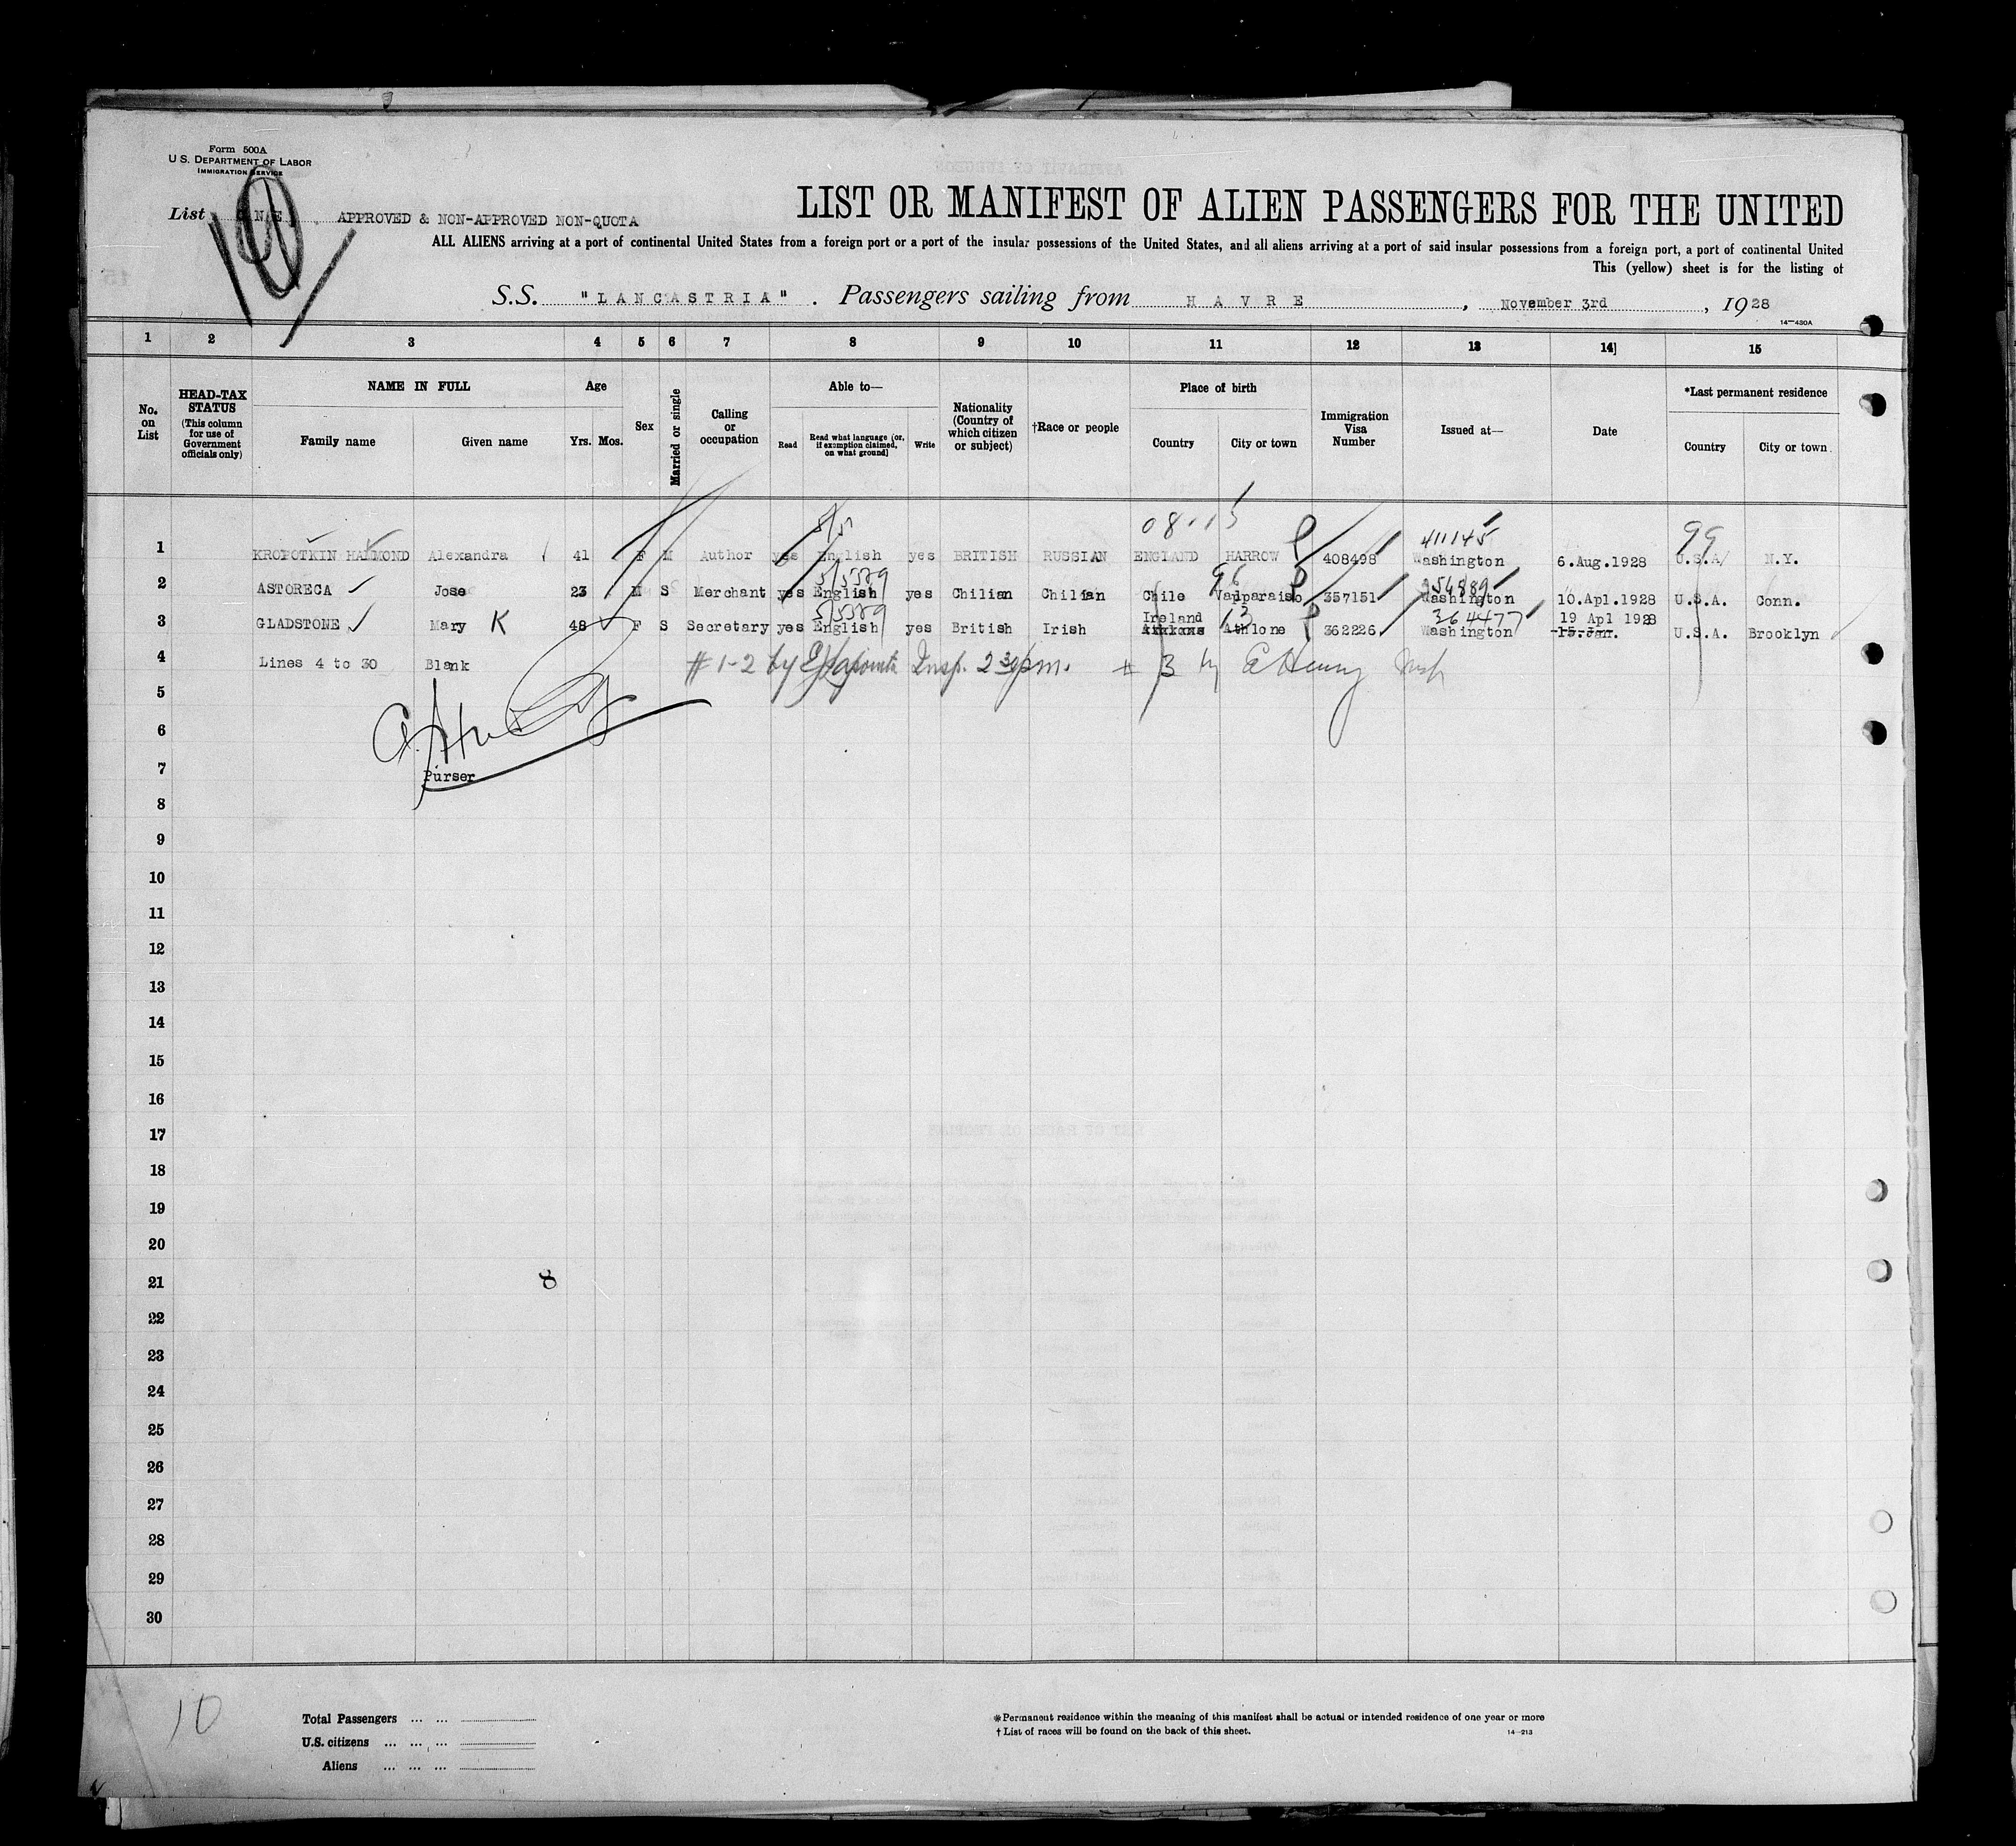 Form 500A
U S. DEPARTMENT OF LABOR
IMMIGRATION SERVICE
List ONE. APPROVED & NON-APPROVED NON-QUOTA
10
LIST OR MANIFEST OF ALIEN PASSENGERS FOR THE UNITED
ALL ALIENS arriving at a port of continental United States from a foreign port or a port of the insular possessions of the United States, and all aliens arriving at a port of said insular possessions from a foreign port, a port of continental United
This (yellow) sheet is for the listing of
S.S. "LANCASTRIA". Passengers sailing from HAVRE, November 3rd, 1928
14—430A
1 2 3 4 5 6 7 8 9 10 11 12 13 14] 15
No. on List
HEAD-TAX STATUS (This column for use of Government officials only)
NAME IN FULL
Family name Given name
Age
Yrs. Mos.
Sex
Married or single
Calling or occupation
Able to—
Read Read what language (or, if exemption claimed, on what ground] Write
Nationality (Country of which citizen or subject)
†Race or people
Place of birth
Country City or town
Immigration Visa Number
Issued at—
Date
*Last permanent residence
Country City or town
5/51 08-15 411145 99
1 KROPOTKIN HAMMOND Alexandra 41 F M Author yes English yes BRITISH RUSSIAN ENGLAND HARROW 408498 Washington 6.Aug.1928 U.S.A/ N.Y.
5/5379 96
2 ASTORECA Jose 23 M S Merchant yes English yes Chilian Chilian Chile Valparaiso 357151 Washington 10.Apl.1928 U.S.A. Conn.
5/5379 Ireland 13 364477 19 Apl 1928
3 GLADSTONE Mary K 48 F S Secretary yes English yes British Irish Athlone 362226 Washington 15.Jan. U.S.A. Brooklyn
4 Lines 4 to 30 Blank # 1-2 by Insp. 2 30 pm. # 3 by E Henny Insp
5
6
7 Purser
8
9
10
11
12
13
14
15
16
17
18
19
20
21 8
22
23
24
25
26
27
28
29
30
10
Total Passengers ... ...
U.S. citizens ... ... ...
Aliens ... ... ...
*Permanent residence within the meaning of this manifest shall be actual or intended residence of one year or more
† List of races will be found on the back of this sheet.
14—213